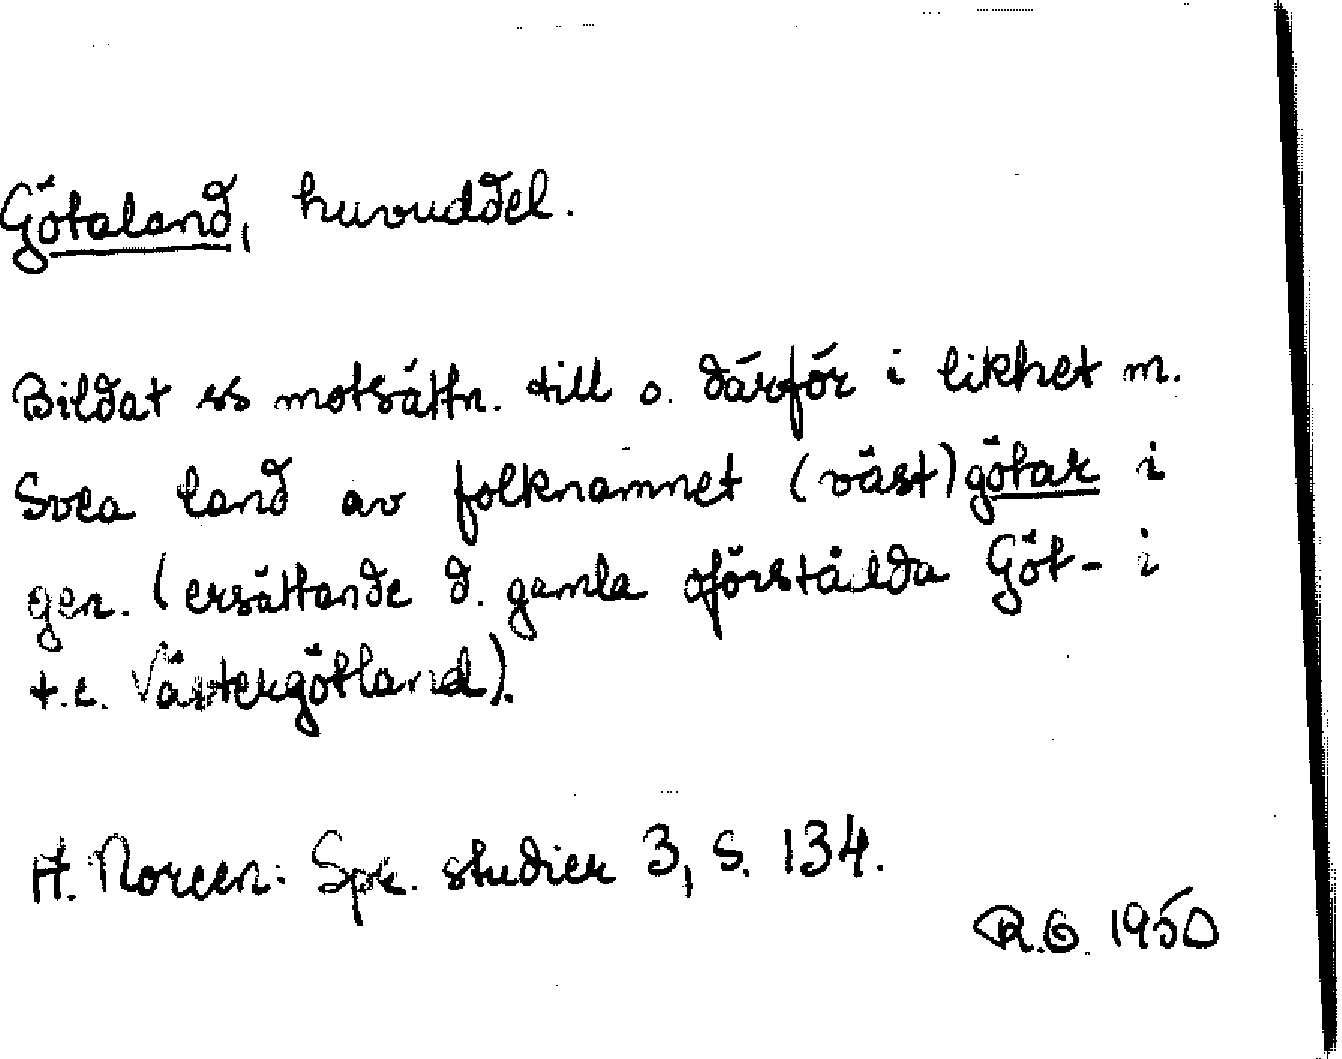 Götaland, huvuddel.
Bildat ss motsättn. till o. därför i likhet m.
Svea land av folknamnet (väst)götar i
gen. (ersättande d. gamla oförstådda Göt- i
t.e. Västergötland).
H. Noreen: Spr. studier 3, S. 134.
R.G. 1950